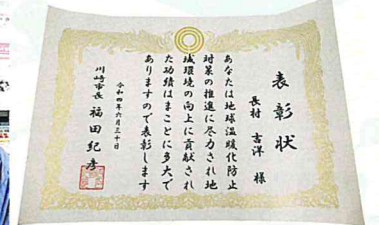 表彰状
長村 吉洋 様
あなたは地球温暖化防止
対策の推進に尽力され地
域環境の向上に貢献され
た功績はまことに多大で
ありますので表彰します
令和四年六月三十日
川崎市長 福田紀彦